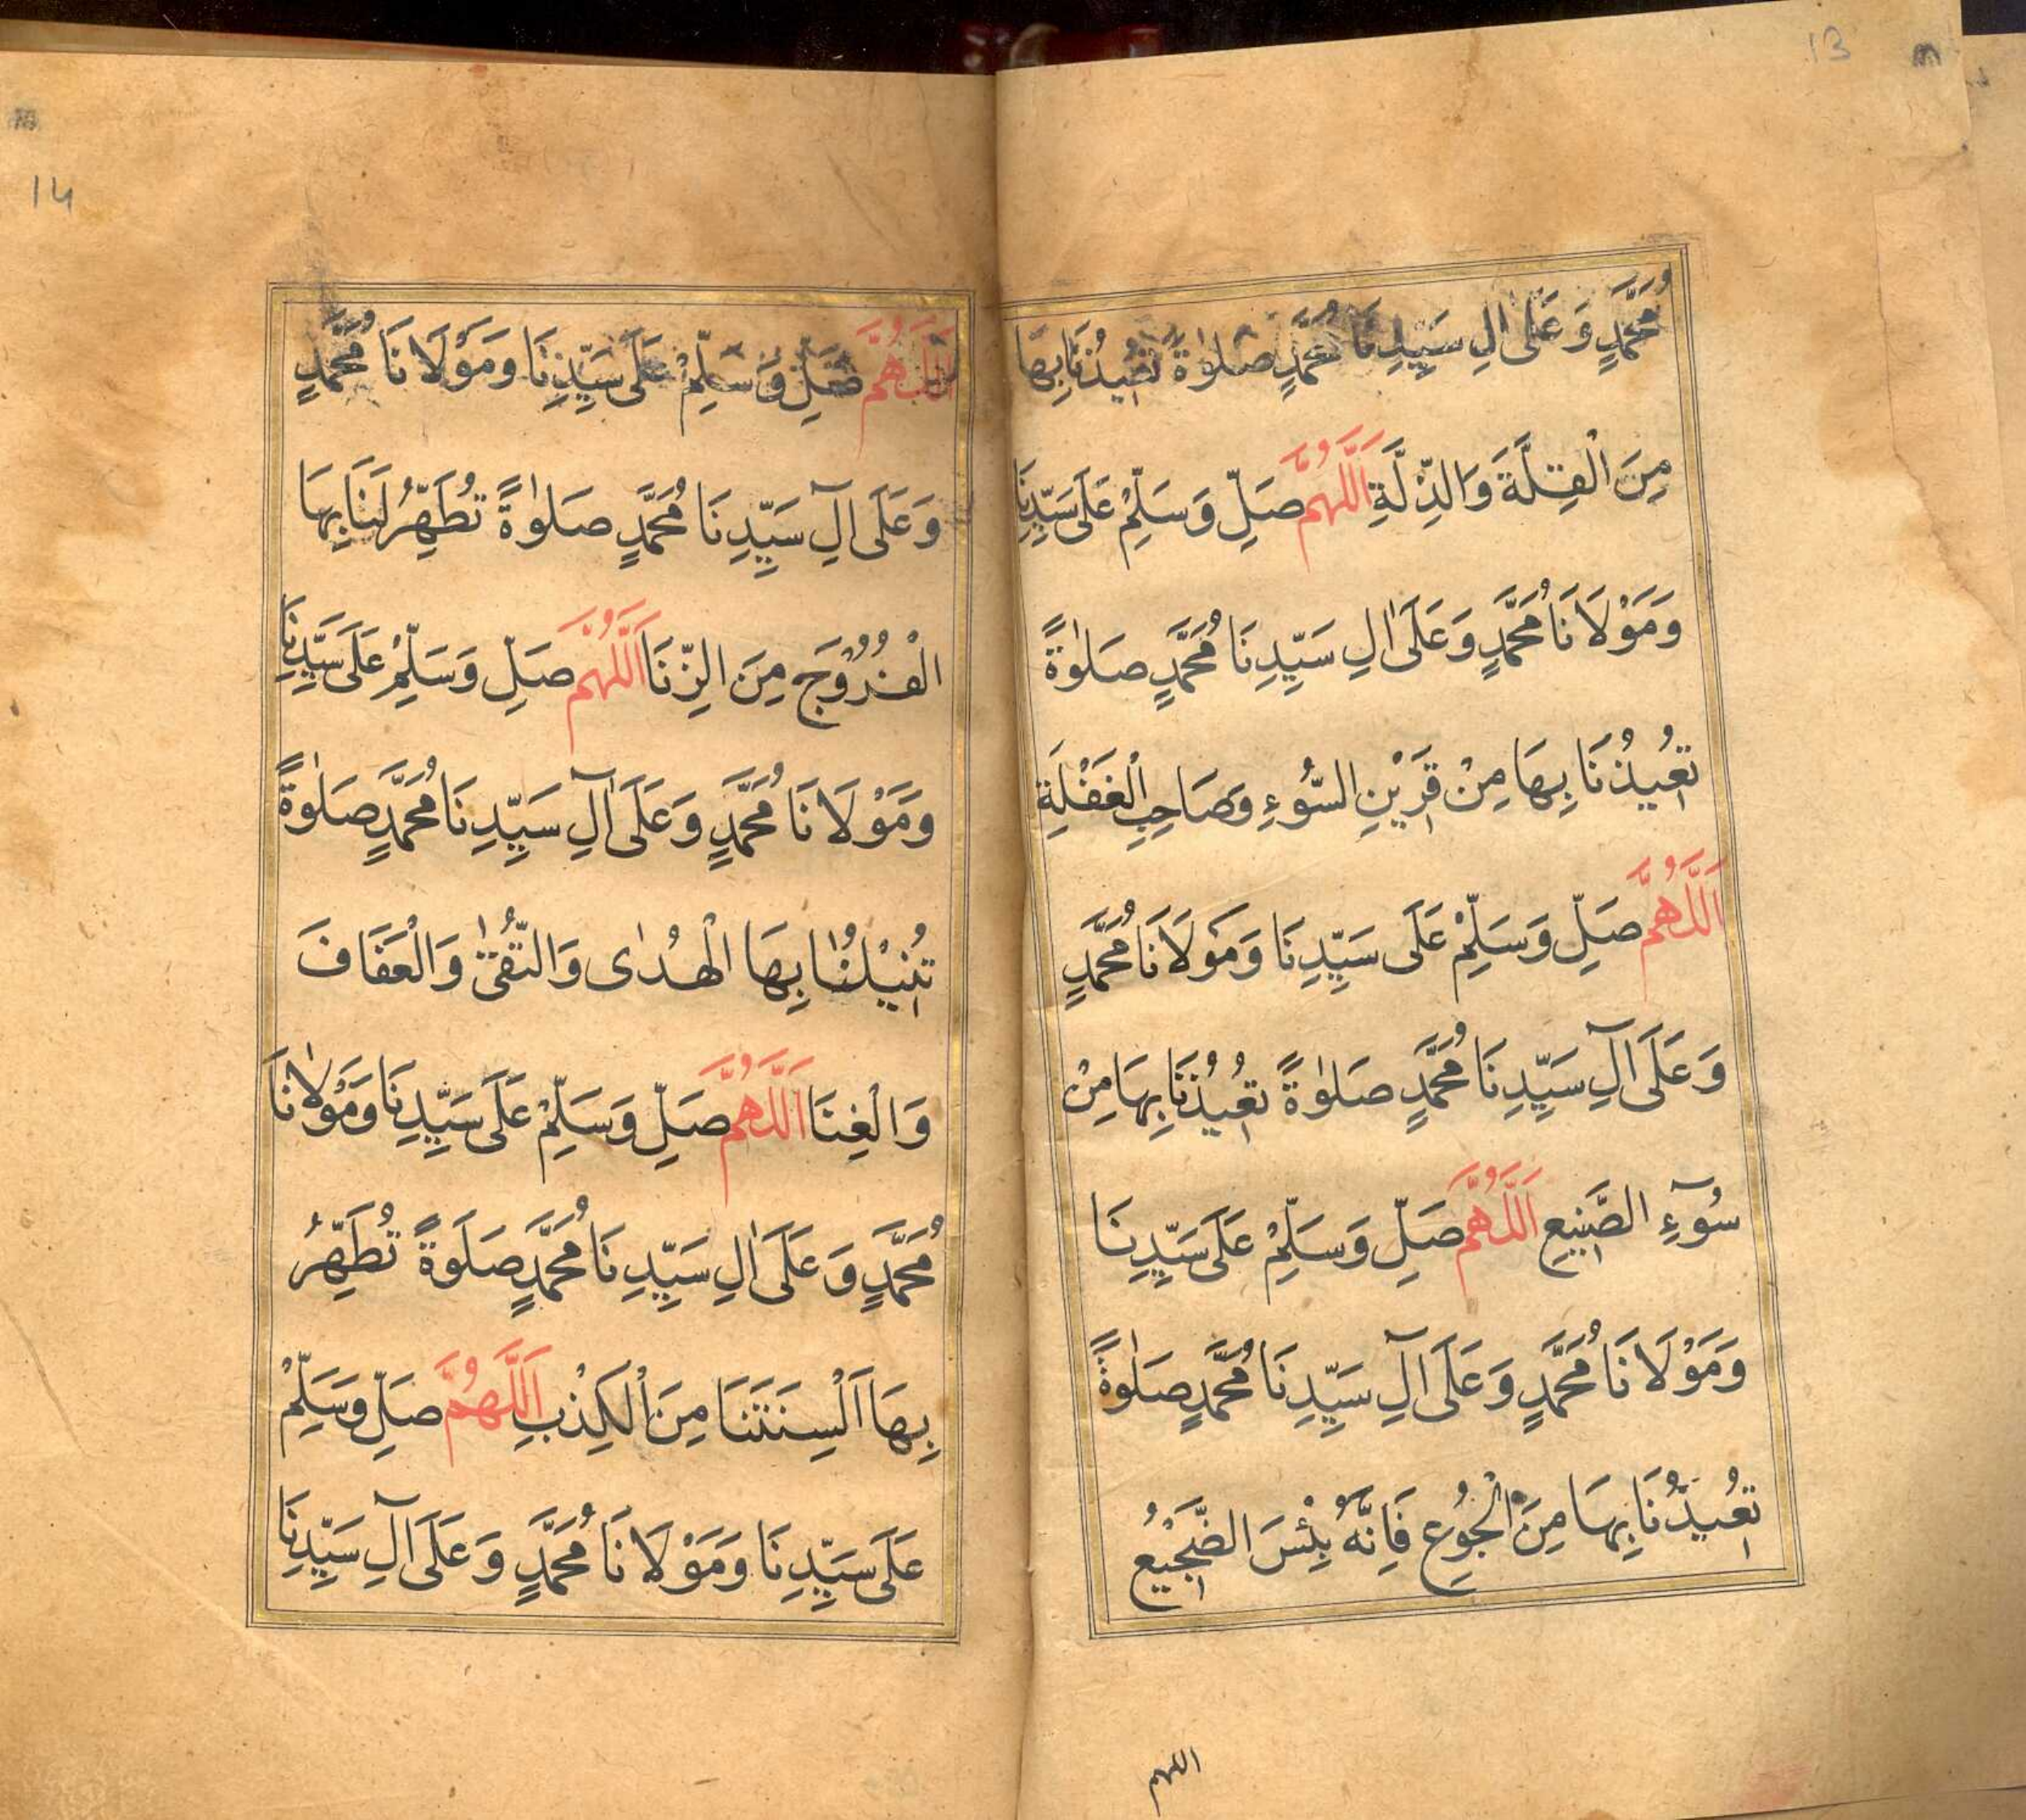 13
مُحَمَّدٍ وَعَلٰى اٰلِ سَيِّدِنَا مُحَمَّدٍ صَلٰوةً تُعِيْذُنَا بِهَا
مِنَ الْقِلَّةَ وَالذِّلَّةِ اَللّٰهُمَّ صَلِّ وَسَلِّمْ عَلٰى سَيِّدِنَا
وَمَوْلَانَا مُحَمَّدٍ وَعَلَى اٰلِ سَيِّدِنَا مُحَمَّدٍ صَلٰوةً
تُعِيذُنَا بِهَا مِنْ قَرِيْنِ السُّوْءِ وَصَاحِبِ الْغَفْلَةِ
اَللّٰهُمَّ صَلِّ وَسَلِّمْ عَلَى سَيِّدِنَا وَمَوْلَانَا مُحَمَّدٍ
وَعَلَى آلِ سَيِّدِنَا مُحَمَّدٍ صَلٰوةً تُعِيْذُنَا بِهَا مِنْ
سُوْٓءِ الصَّنِيعِ اَللّٰهُمَّ صَلِّ وَسَلِّمْ عَلَى سَيِّدِنَا
وَمَوْلَانَا مُحَمَّدٍ وَعَلَى آلِ سَيِّدِنَا مُحَمَّدٍ صَلٰوةً
تُعِيذُنَا بِهَا مِنَ الْجُوْعِ فَاِنَّهُ بِئْسَ الضَّجِيْعُ
اللهم
14
اَللّٰهُمَّ صَلِّ وَسَلِّمْ عَلَى سَيِّدِنَا وَمَوْلَانَا مُحَمَّدٍ
وَعَلَى آلِ سَيِّدِنَا مُحَمَّدٍ صَلٰوةً تُطَهِّرُ لَنَا بِهَا
الْفُرُوْجَ مِنَ الزِّنَا اَللّٰهُمَّ صَلِّ وَسَلِّمْ عَلَى سَيِّدِنَا
وَمَوْلَانَا مُحَمَّدٍ وَعَلَى آلِ سَيِّدِنَا مُحَمَّدٍ صَلٰوةً
تُنِيْلُنَا بِهَا الْهُدٰى وَالتُّقٰى وَالْعَفَافَ
وَالْغِنَا اَللّٰهُمَّ صَلِّ وَسَلِّمْ عَلَى سَيِّدِنَا وَمَوْلَانَا
مُحَمَّدٍ وَعَلَى اٰلِ سَيِّدِنَا مُحَمَّدٍ صَلَوةً تُطَهِّرُ
بِهَا اَلْسِنَتَنَا مِنَ الْكِذْبِ اَللّٰهُمَّ صَلِّ وَسَلِّمْ
عَلَى سَيِّدِنَا وَمَوْلَانَا مُحَمَّدٍ وَعَلَى آلِ سَيِّدِنَا